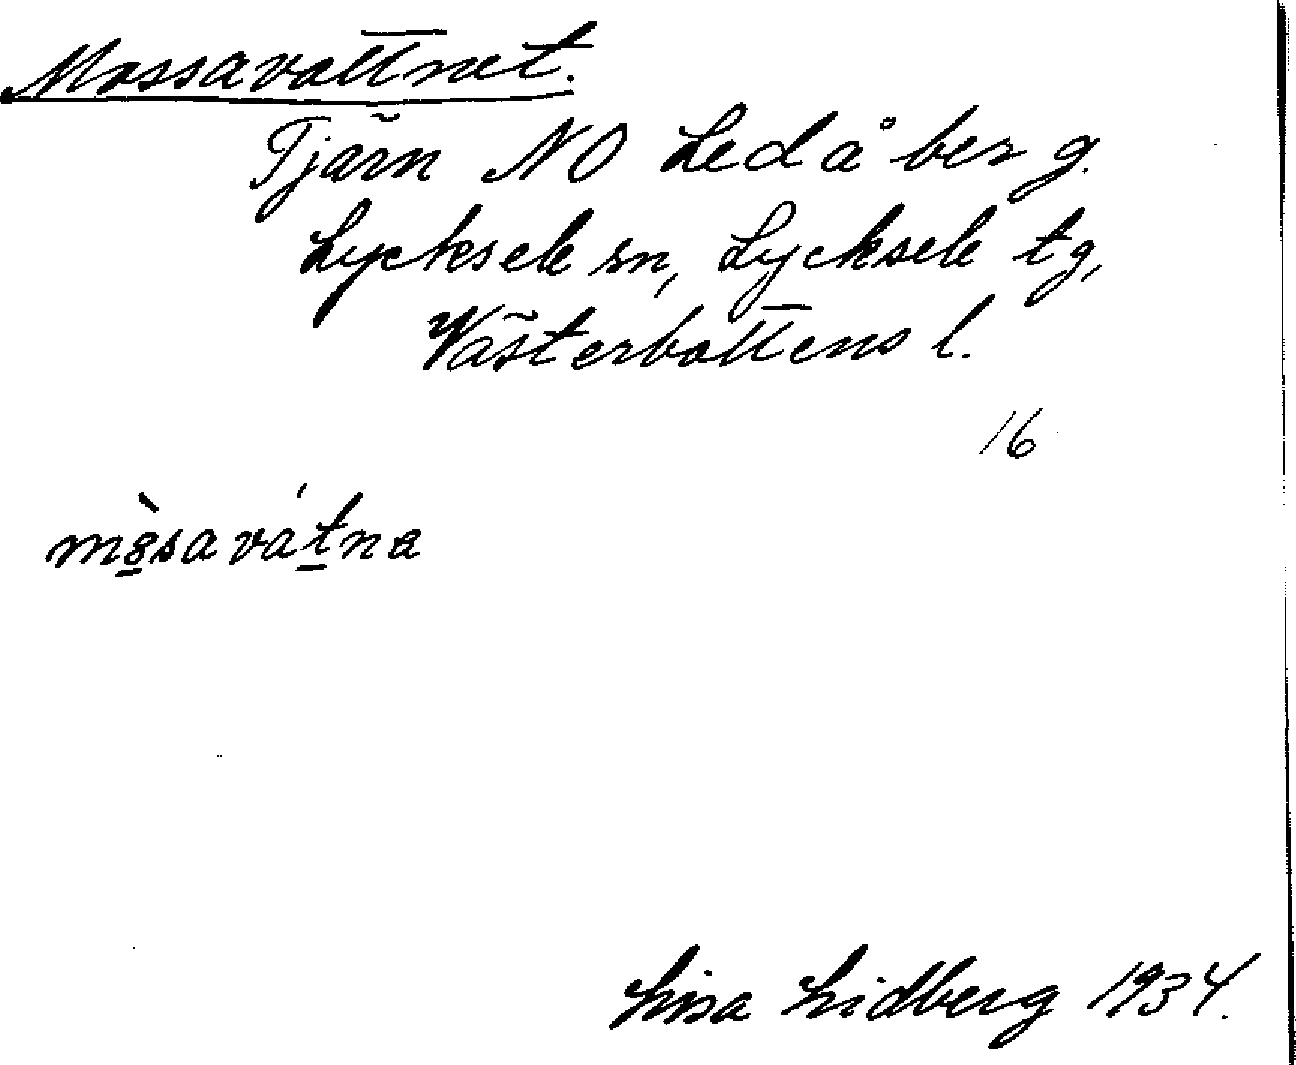 Mossavattnet.
Tjärn NO Ledåberg.
Lycksele sn, Lycksele tg,
Västerbottens l.
16
mòsavátna
Lisa Lidberg 1934.